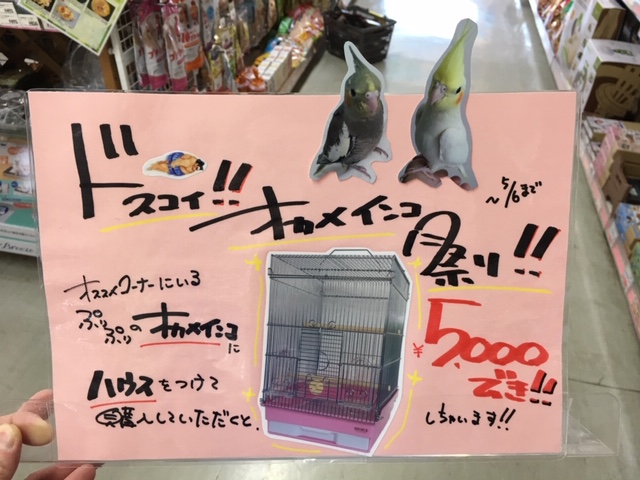 ドスコイ!!
オカメインコ祭り!!
～5/6まで
オススメコーナーにいる
ぷりぷりのオカメインコに
ハウスをつけて
購入していただくと、
¥5,000
びき!!
しちゃいます!!